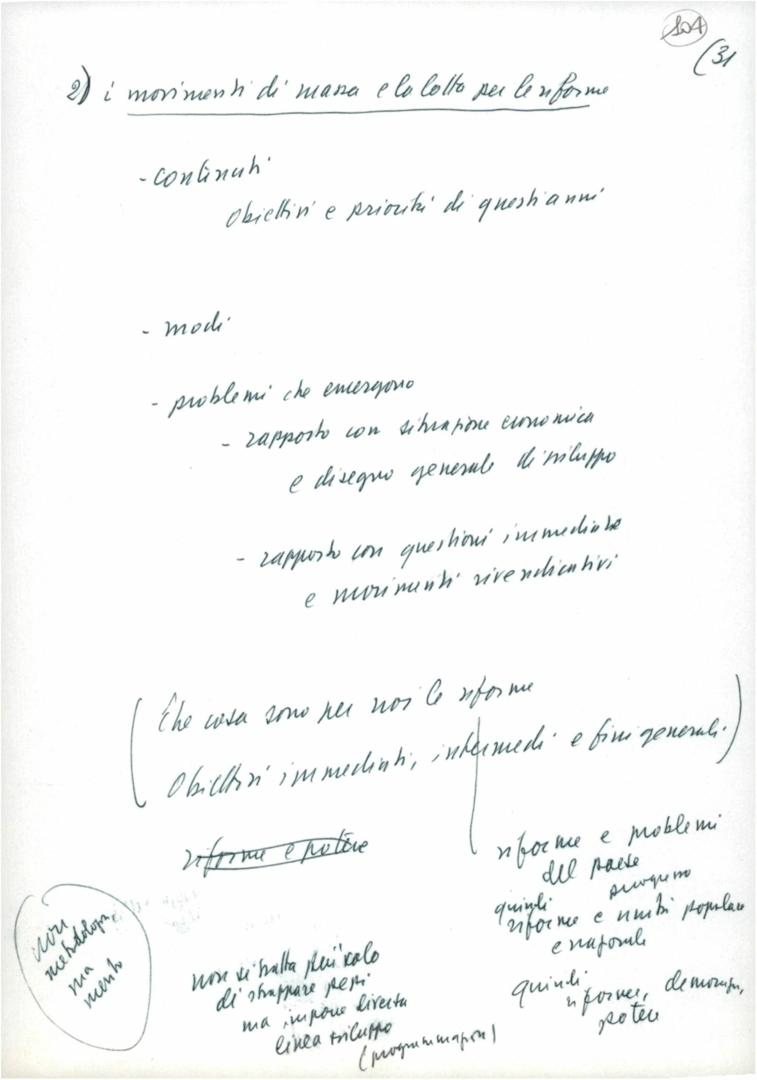 104
(31
2) i movimenti di massa e la lotta per le riforme
- contenuti
obiettivi e priorità di questi anni
- modi
- problemi che emergono
- rapporto con situazione economica
e disegno generale di sviluppo
- rapporto con questioni immediate
e movimenti rivendicativi
(Che cosa sono per noi le riforme
Obiettivi immediati, intermedi e fini generali.)
riforme e potere
riforme e problemi
del paese
progresso
quindi
riforme e unità popolare
e nazionale
quindi
riforme, democrazia,
potere
non
metodologia
ma
merito
non si tratta più solo
di strappare pezzi
ma imporre diversa
linea sviluppo
(programmazione)